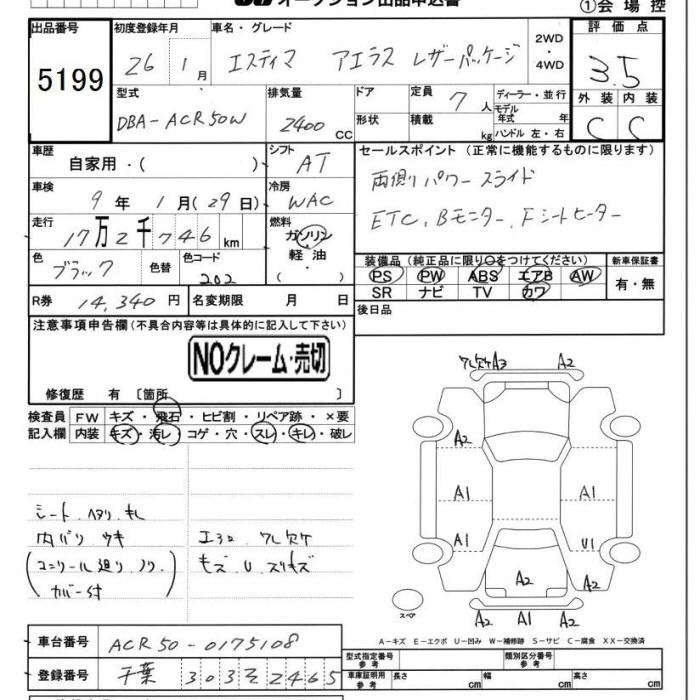 オークション出品申込書
①会場控
出品番号
5199
初度登録年月
26 1月
車名・グレード
エスティマ アエラス レザーパッケージ
2WD
・4WD
評価点
3.5
外装 内装
C C
型式
DBA-ACR50W
排気量
2400 CC
ドア
形状
定員 7人
積載 kg
ディーラー・並行
モデル年式 年
ハンドル 左・右
車歴
自家用・( )
シフト
AT
車検
9年 1月(29日)
冷房
WAC
走行
17万2千746km
燃料
ガソリン
軽油
・( )
色
ブラック
色替
色コード
202
R券 14,340円
名変期限 月 日
セールスポイント(正常に機能するものに限ります)
両側パワースライド
ETC、Bモニター、Fシートヒーター
装備品(純正品に限り○をつけてください)
PS PW ABS エアB AW
SR ナビ TV カワ
新車保証書
有・無
後日品
注意事項申告欄(不具合内容等は具体的に記入して下さい)
NOクレーム・売切
修復歴 有〔箇所 〕
検査員記入欄
FW キズ・飛石・ヒビ割・リペア跡・×要
内装 キズ・汚レ・コゲ・穴・スレ・キレ・破レ
シート ヘタリ、キレ
内バリ ウキ
(コンソール廻り ノリ、
カバー付)
エアロ ワレ欠ケ
キズ U スリキズ
ワレ欠ケ A3 A2
A2 A2
A1 A1
A1 U1
A2 A2
A2 A1 A2
スペア
A-キズ E-エクボ U-凹み W-補修跡 S-サビ C-腐食 XX-交換済
車台番号 ACR50-0175108
登録番号 千葉 303 そ 2465
型式指定番号 参考
類別区分番号 参考
車庫証明用 参考
長さ cm 幅 cm 高さ cm